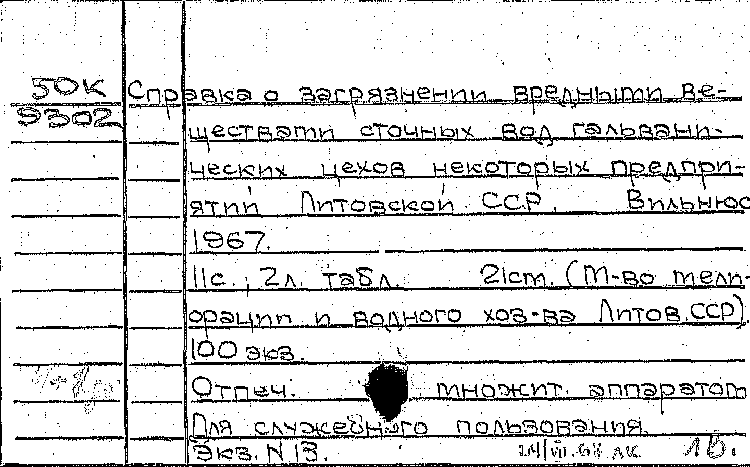 50К Справка о загрязнении вредными ве-
9302
ществами сточных вод гальвани-
ческих цехов некоторых предпри-
ятий Литовской ССР. Вильнюс
1967.
11с., 2л. табл. 21см. (М-во мели-
орации и водного хоз-ва Литов.ССР).
100 экз.
Отпеч. множит. аппаратом
Для служебного пользования.
Экз. N 13. 1б.